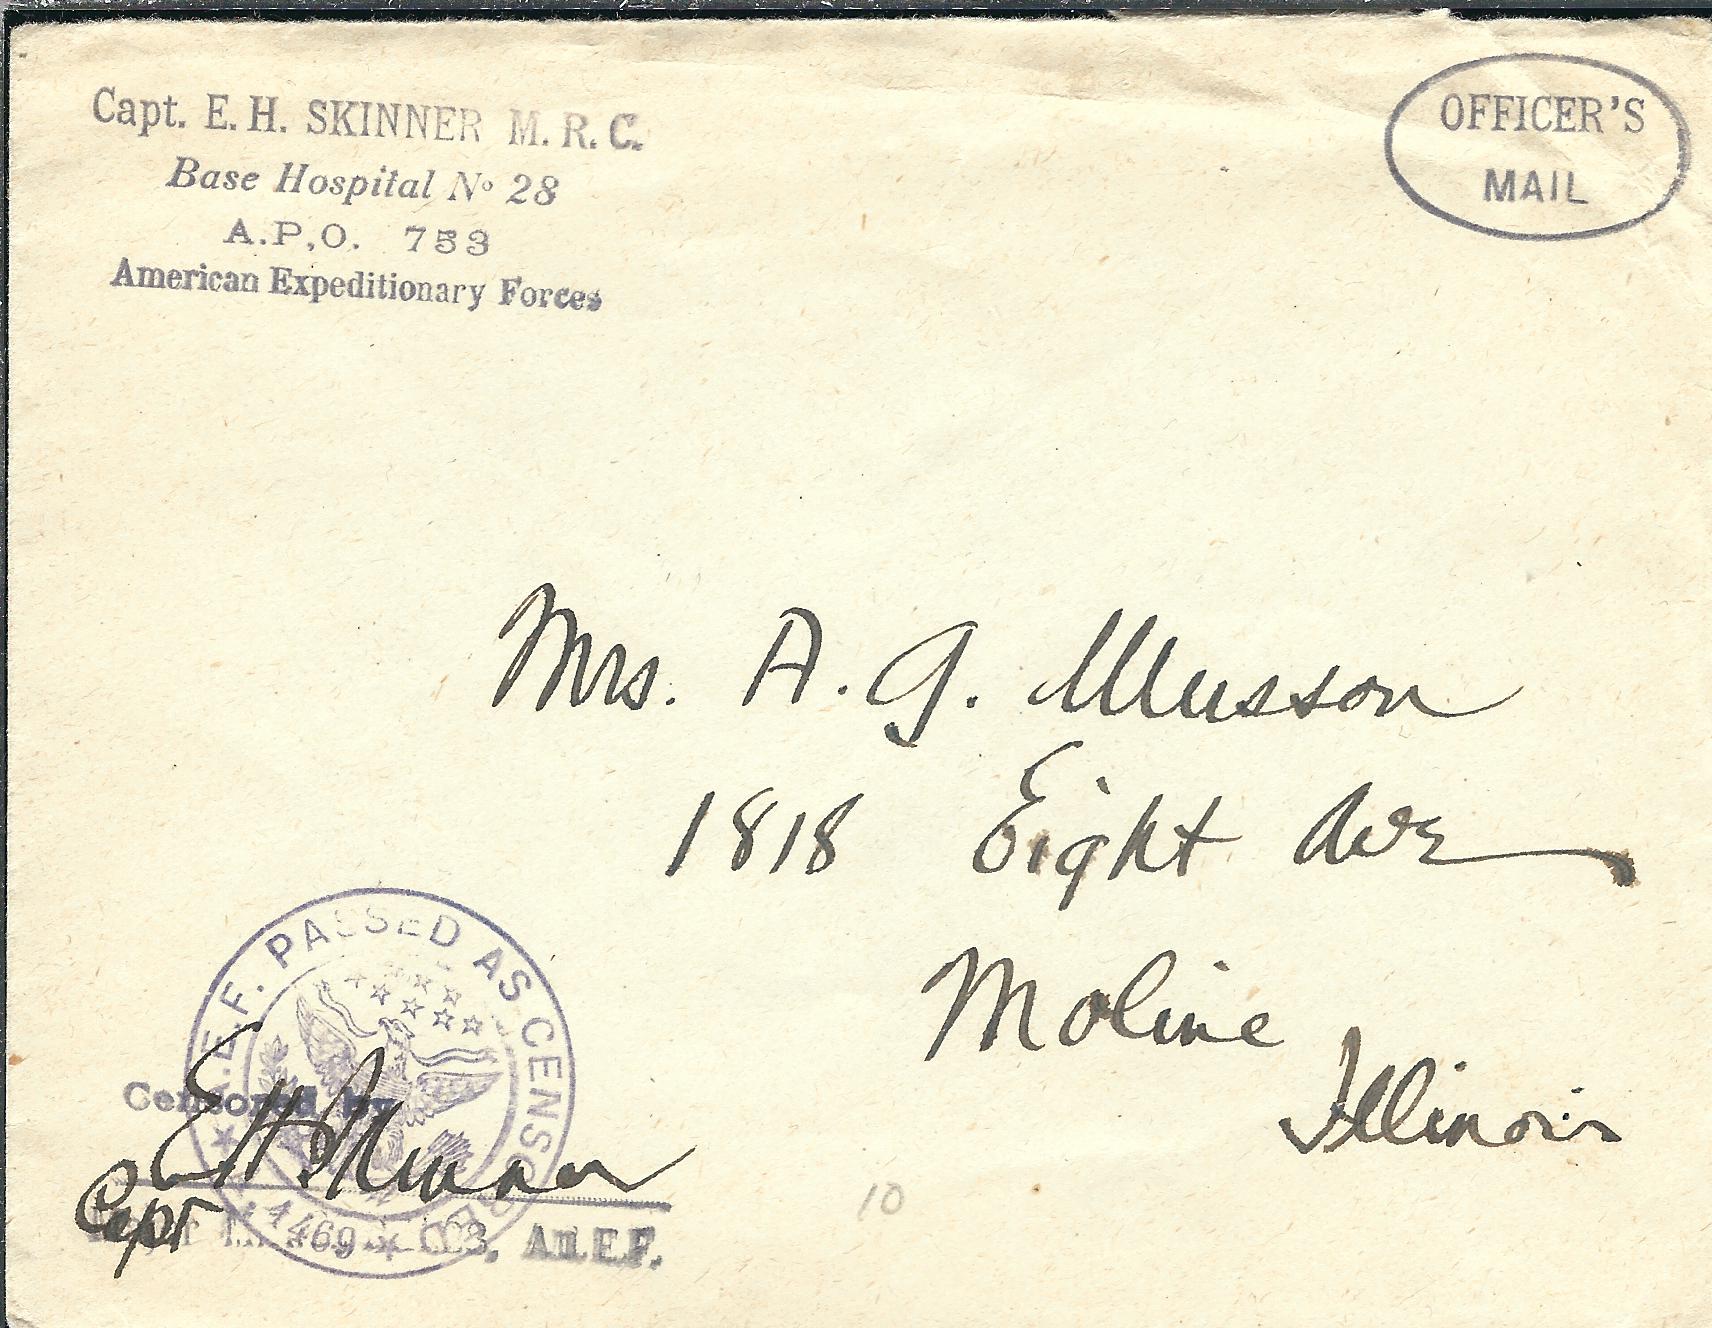 Capt. E. H. SKINNER M. R. C.
Base Hospital No 28
A.P.O. 753
American Expeditionary Forces
OFFICER'S
MAIL
Mrs. A. G. Musson
1818 Eight Ave
Moline
Illinois
A.E.F. PASSED AS CENSORED
1469
Censored by
EH Skinner
Capt
A.E.F.
10